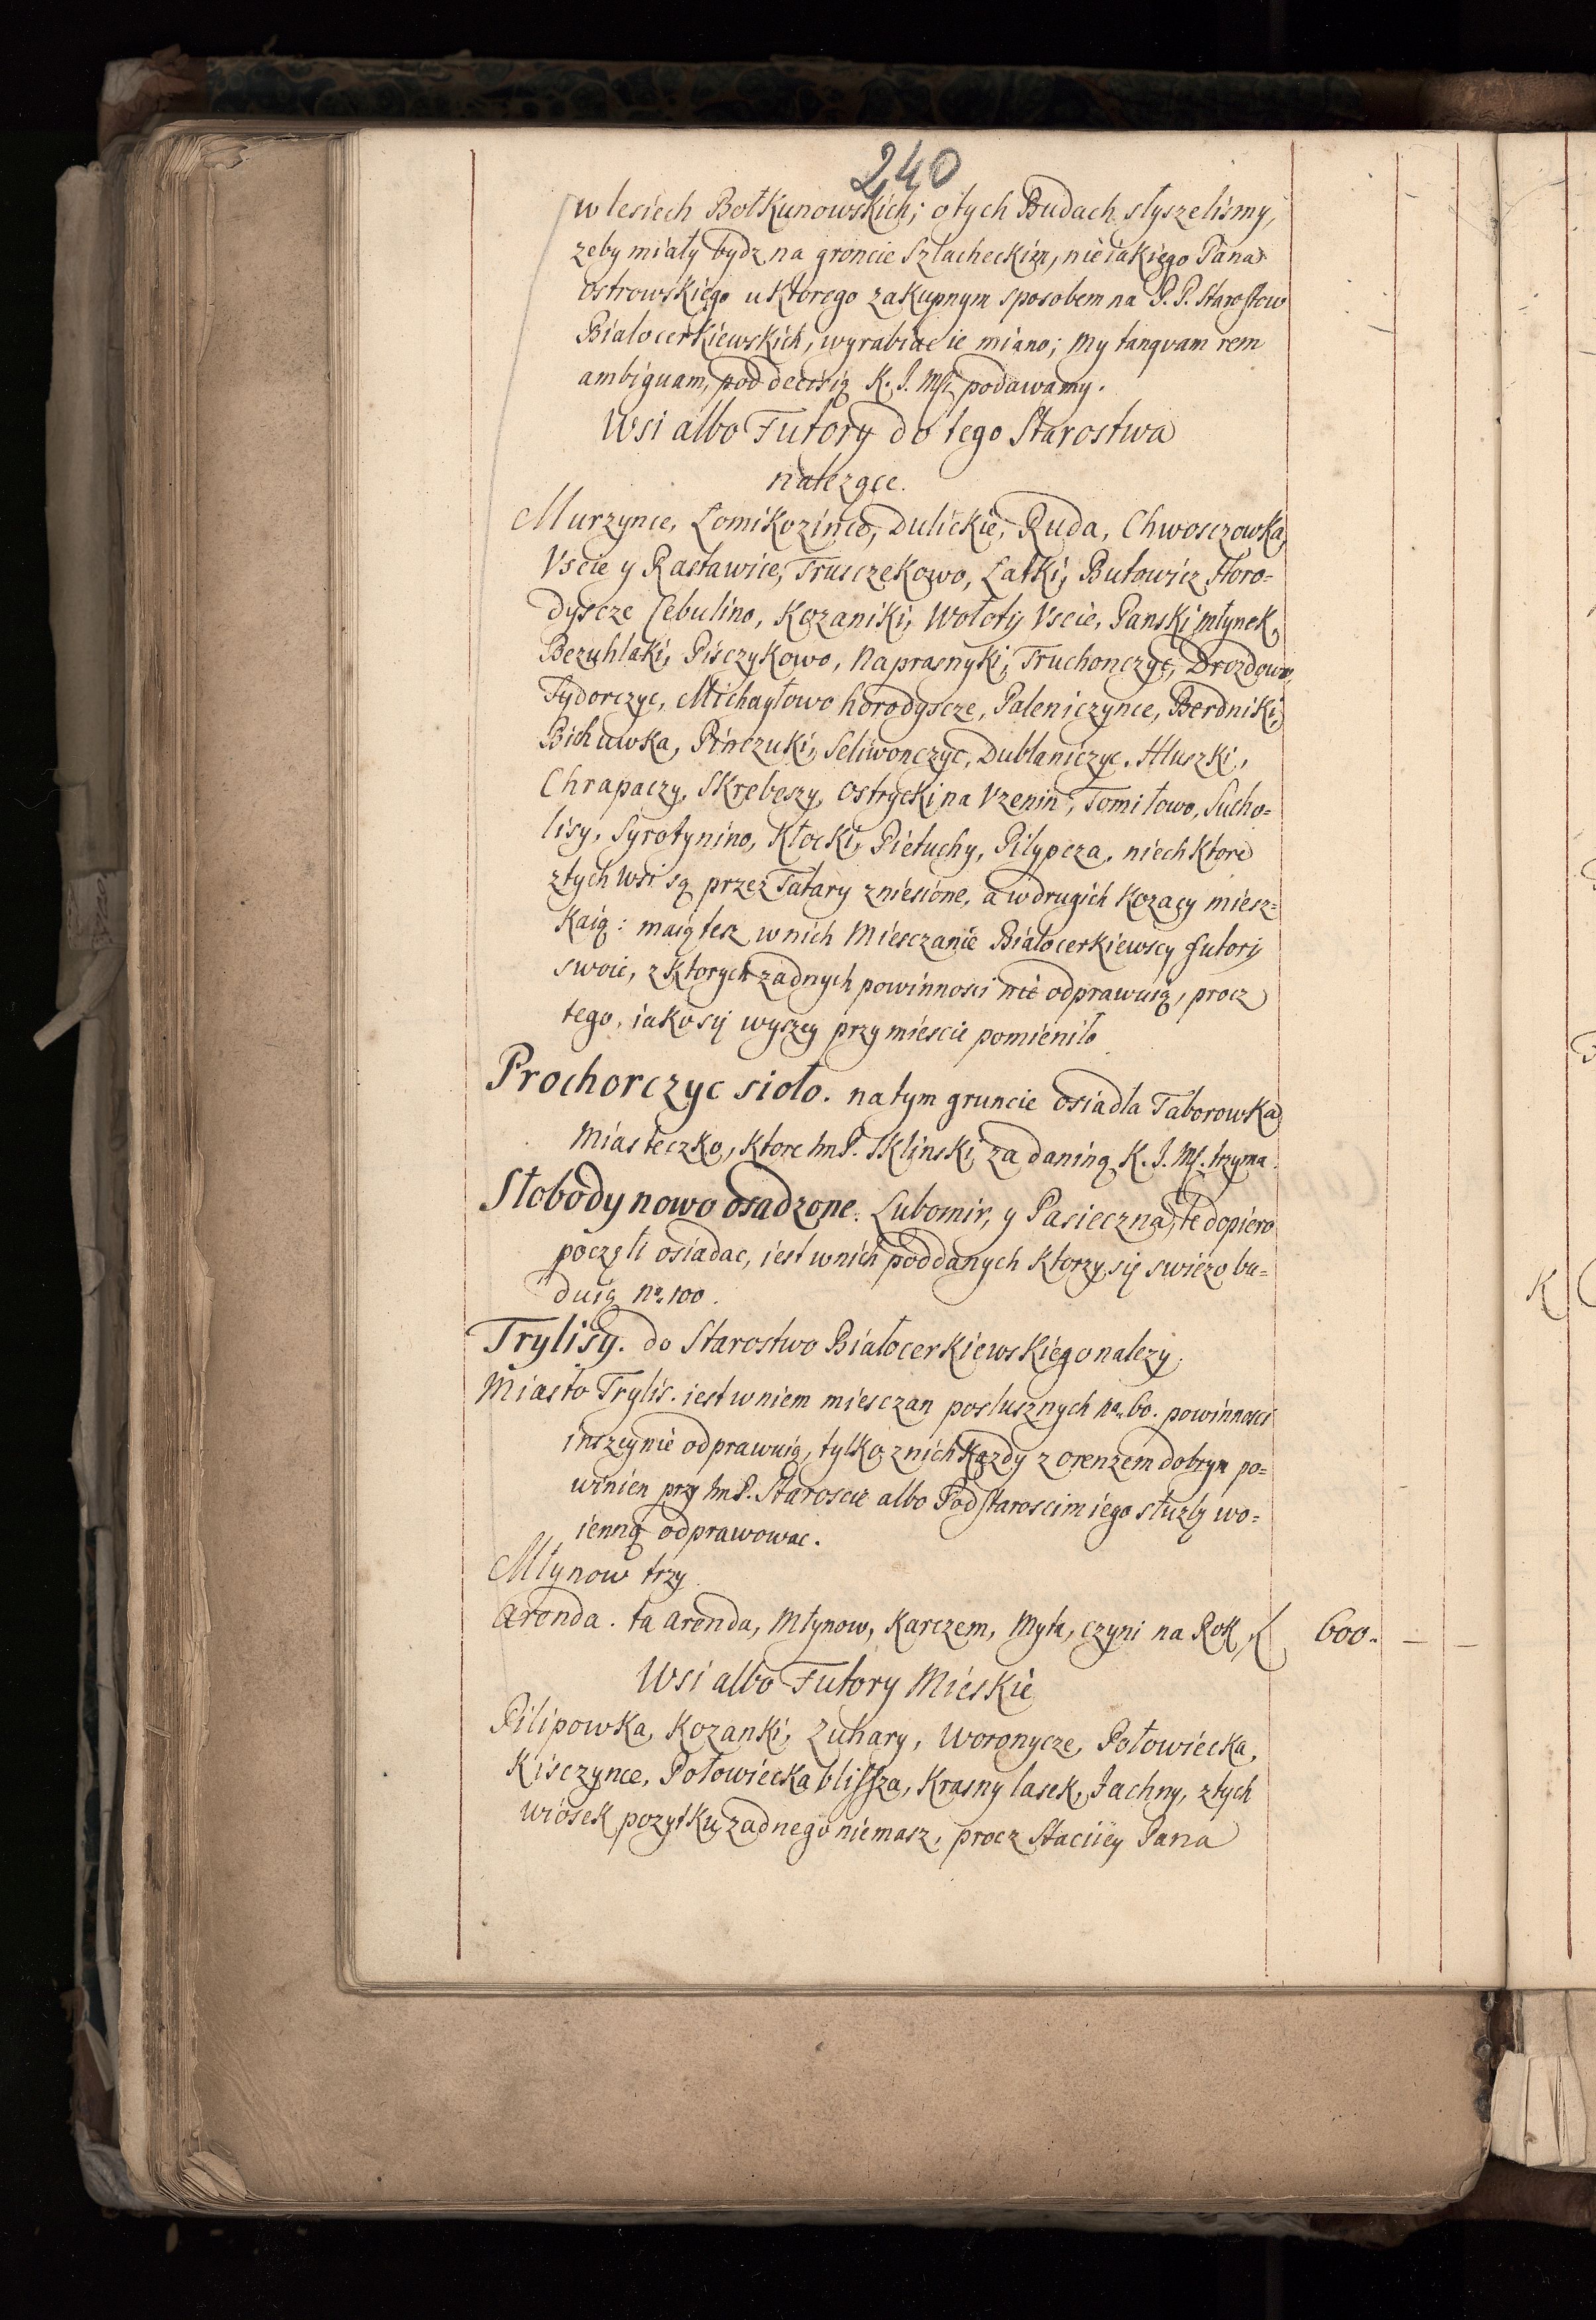 240
w lesiech Bołkunowskich; o tych Budach słyszelismy,
zeby miały bydz na groncie Szlacheckim, nieiakiego Pana
Ostrowskiego u ktorego zakupnym sposobem na P. P. Starostow
Białocerkiewskich, wyrabiac ie miano; my tanqvam rem
ambiguam, pod decisią K. J. Msci podawamy.
Wsi albo Futory do tego Starostwa
nalezące.
Murzynce, Łomikozince, Dulickie, Ruda, Chwosczowka,
Vscie y Rastawice, Trusczekowo, Łatki, Butowicz Horo=
dyscze Cebulino, Kozaniki, Wołoty Vscie, Panski młynek,
Bezuhlaki, Pisczykowo, Naprasnyki, Truchonczyc, Drozdowo,
Fydorczyc, Michayłowo horodyscze, Paleniczynce, Berdniki,
Bichuwka, Pinczuki, Seliwonczyc, Dublaniczyc, Hluszki,
Chrapaczy, Skrebeszy, Ostrycki na Vzenin, Tomiłowo, Sucho=
lisy, Syrotynino, Kłocki, Pietuchy, Pilypcza, niechktore
z tych wsi są przez Tatary zniesione, a w drugich Kozacy miesz=
kaią: maią tesz w nich Miesczanie Białocerkiewscy futory
swoie, z ktorych zadnych powinnosci nie odprawuią, procz
tego, iako się wyszey przy miescie pomieniło
Prochorczyc sioło. na tym gruncie osiadła Taborowka
Miasteczko, ktore Im P. Sklinski za daniną K. J. Ms. trzyma.
Słobody nowo osadzone. Lubomir, y Pasieczna, te dopiero
poczęli osiadac, iest w nich poddanych ktorzy się swiezo bu=
duią nro. 100.
Trylisy. do Starostwo Białocerkiewskiego nalezy.
Miasto Trylis. iest w niem miesczan posłusznych nro. 60. powinnosci
inszey nie odprawuią, tylko z nich kazdy z orenzem dobrym po=
winien przy Im P. Staroscie albo Podstaroscim iego słuzbę wo=
ienną odprawowac.
Młynow trzy
Aronda. ta aronda, Młynow, Karczem, Myta, czyni na Rok f. 600. — —
Wsi albo Futory Mieskie
Pilipowka, Kozanki, Zuhary, Woronycze, Połowiecka,
Kisczynce, Połowiecka blissza, Krasny lasek, Jachny, z tych
wiosek pozytku zadnego niemasz, procz Staciiey Pana